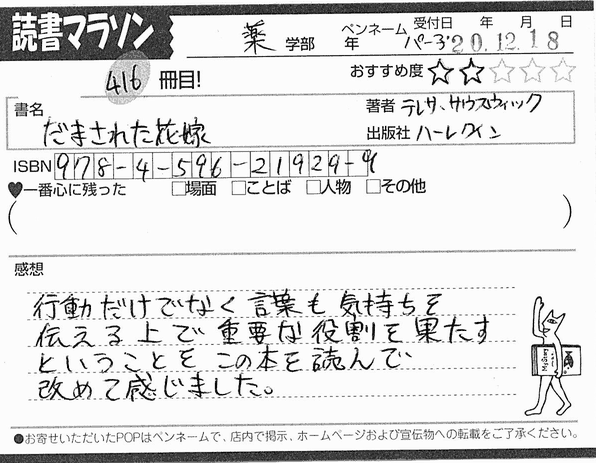 読書マラソン
薬 学部 年 ペンネーム パーラ 受付日 年 月 日
'20.12.18
416 冊目!
おすすめ度 ★★☆☆☆
書名 だまされた花嫁
著者 テレサ・サウスウィック
出版社 ハーレクイン
ISBN 978-4-596-21929-9
♥一番心に残った □場面 □ことば □人物 □その他
( )
感想
行動だけでなく言葉も気持ちを
伝える上で重要な役割を果たす
ということをこの本を読んで
改めて感じました。
●お寄せいただいたPOPはペンネームで、店内で掲示、ホームページおよび宣伝物への転載をご了承ください。